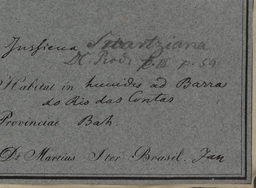 Jussiena Swartziana
DC. Prod. p. 54
Habitat in humidis ad Barra
do Rio das Contas
Provinciae Bah.
Dr Martius Iter Brasil. Jan